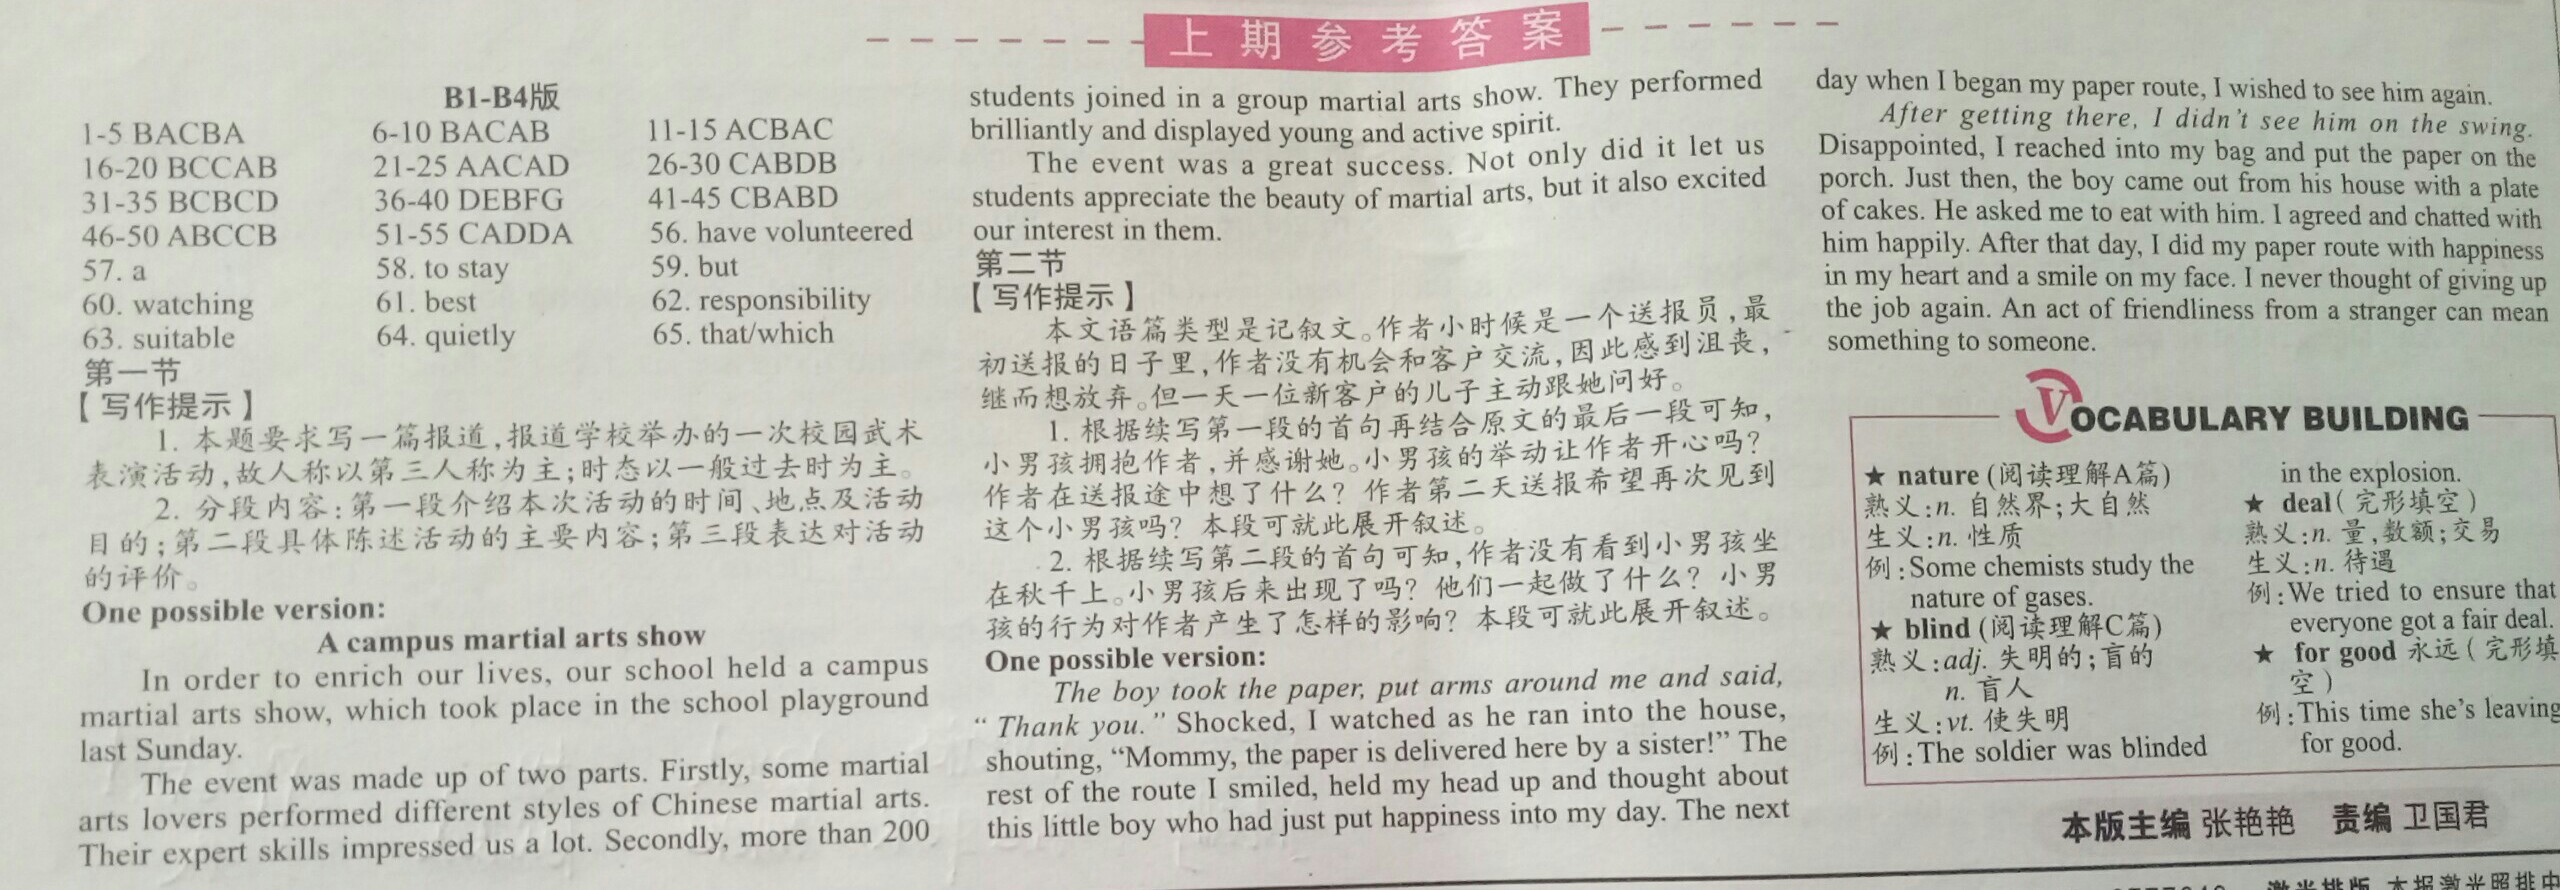 上期参考答案
B1-B4版
1-5 BACBA 6-10 BACAB 11-15 ACBAC
16-20 BCCAB 21-25 AACAD 26-30 CABDB
31-35 BCBCD 36-40 DEBFG 41-45 CBABD
46-50 ABCCB 51-55 CADDA 56. have volunteered
57. a 58. to stay 59. but
60. watching 61. best 62. responsibility
63. suitable 64. quietly 65. that/which
第一节
【写作提示】
1. 本题要求写一篇报道,报道学校举办的一次校园武术
表演活动,故人称以第三人称为主;时态以一般过去时为主。
2. 分段内容:第一段介绍本次活动的时间、地点及活动
目的;第二段具体陈述活动的主要内容;第三段表达对活动
的评价。
One possible version:
A campus martial arts show
In order to enrich our lives, our school held a campus
martial arts show, which took place in the school playground
last Sunday.
The event was made up of two parts. Firstly, some martial
arts lovers performed different styles of Chinese martial arts.
Their expert skills impressed us a lot. Secondly, more than 200
students joined in a group martial arts show. They performed
brilliantly and displayed young and active spirit.
The event was a great success. Not only did it let us
students appreciate the beauty of martial arts, but it also excited
our interest in them.
第二节
【写作提示】
本文语篇类型是记叙文。作者小时候是一个送报员,最
初送报的日子里,作者没有机会和客户交流,因此感到沮丧,
继而想放弃。但一天一位新客户的儿子主动跟她问好。
1. 根据续写第一段的首句再结合原文的最后一段可知,
小男孩拥抱作者,并感谢她。小男孩的举动让作者开心吗?
作者在送报途中想了什么? 作者第二天送报希望再次见到
这个小男孩吗? 本段可就此展开叙述。
2. 根据续写第二段的首句可知,作者没有看到小男孩坐
在秋千上。小男孩后来出现了吗? 他们一起做了什么? 小男
孩的行为对作者产生了怎样的影响? 本段可就此展开叙述。
One possible version:
The boy took the paper, put arms around me and said,
“Thank you.” Shocked, I watched as he ran into the house,
shouting, “Mommy, the paper is delivered here by a sister!” The
rest of the route I smiled, held my head up and thought about
this little boy who had just put happiness into my day. The next
day when I began my paper route, I wished to see him again.
After getting there, I didn't see him on the swing.
Disappointed, I reached into my bag and put the paper on the
porch. Just then, the boy came out from his house with a plate
of cakes. He asked me to eat with him. I agreed and chatted with
him happily. After that day, I did my paper route with happiness
in my heart and a smile on my face. I never thought of giving up
the job again. An act of friendliness from a stranger can mean
something to someone.
VOCABULARY BUILDING
★ nature (阅读理解A篇)
熟义:n. 自然界;大自然
生义:n. 性质
例:Some chemists study the
nature of gases.
★ blind (阅读理解C篇)
熟义:adj. 失明的;盲的
n. 盲人
生义:vt. 使失明
例:The soldier was blinded
in the explosion.
★ deal(完形填空)
熟义:n. 量,数额;交易
生义:n. 待遇
例:We tried to ensure that
everyone got a fair deal.
★ for good 永远(完形填
空)
例:This time she's leaving
for good.
本版主编 张艳艳 责编 卫国君
激光排版 本报激光照排中